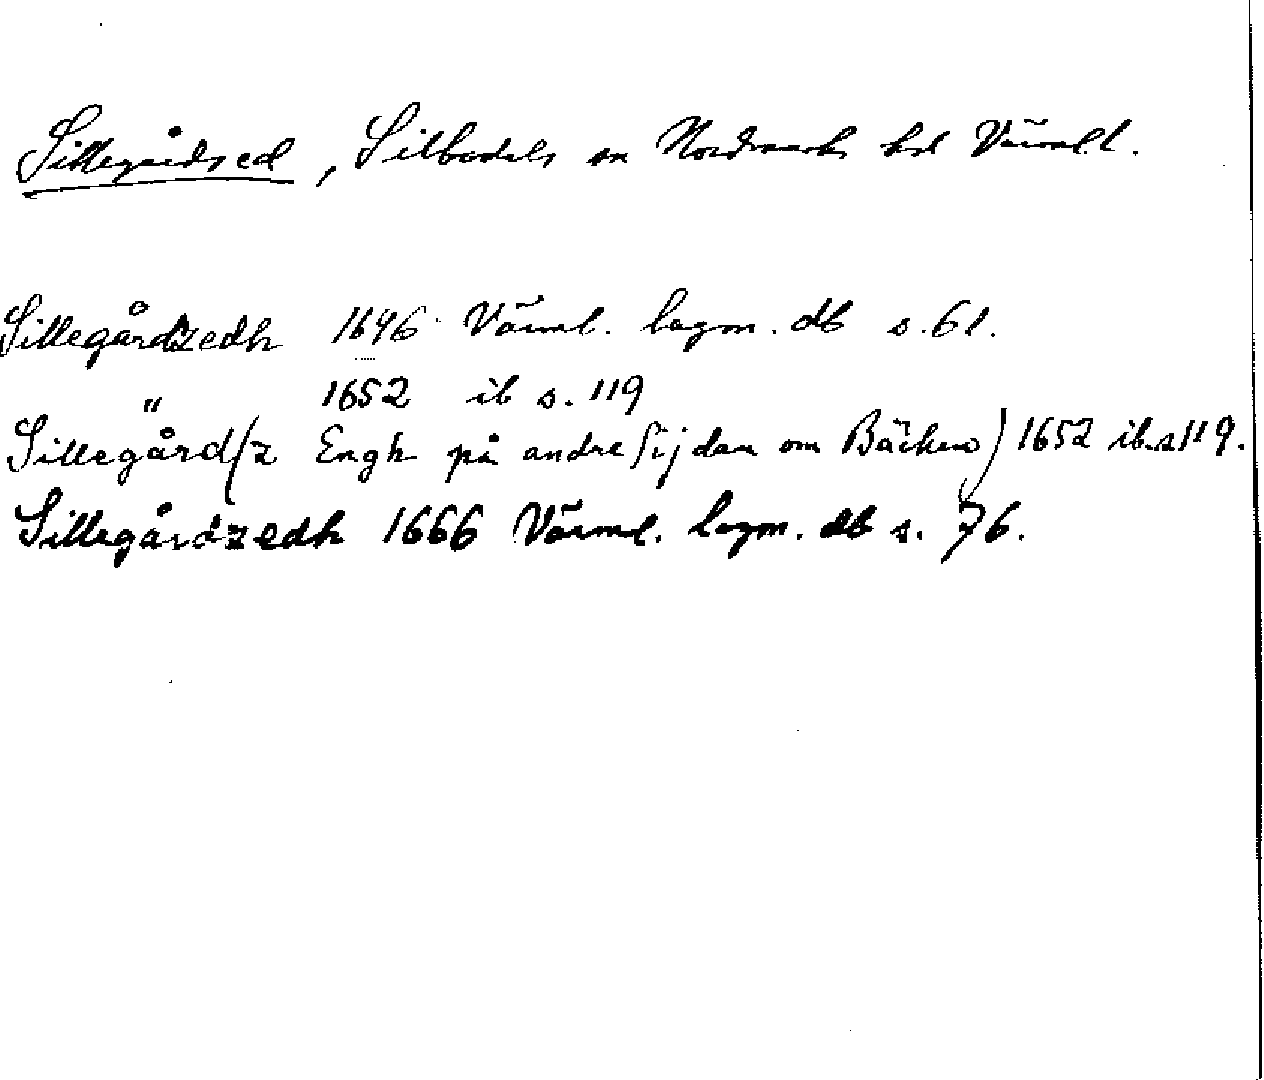 Sillegårdsed, Silbodals sn Nordmarks hd Värml.
Sillegårdzedh 1646 Värml. lagm. db s. 61.
" 1652 ib s. 119
Sillegård(z Engh på andre sijdan om Bäcken) 1652 ib. s 119.
Sillegårdzedh 1666 Värml. lagm. db s. 76.